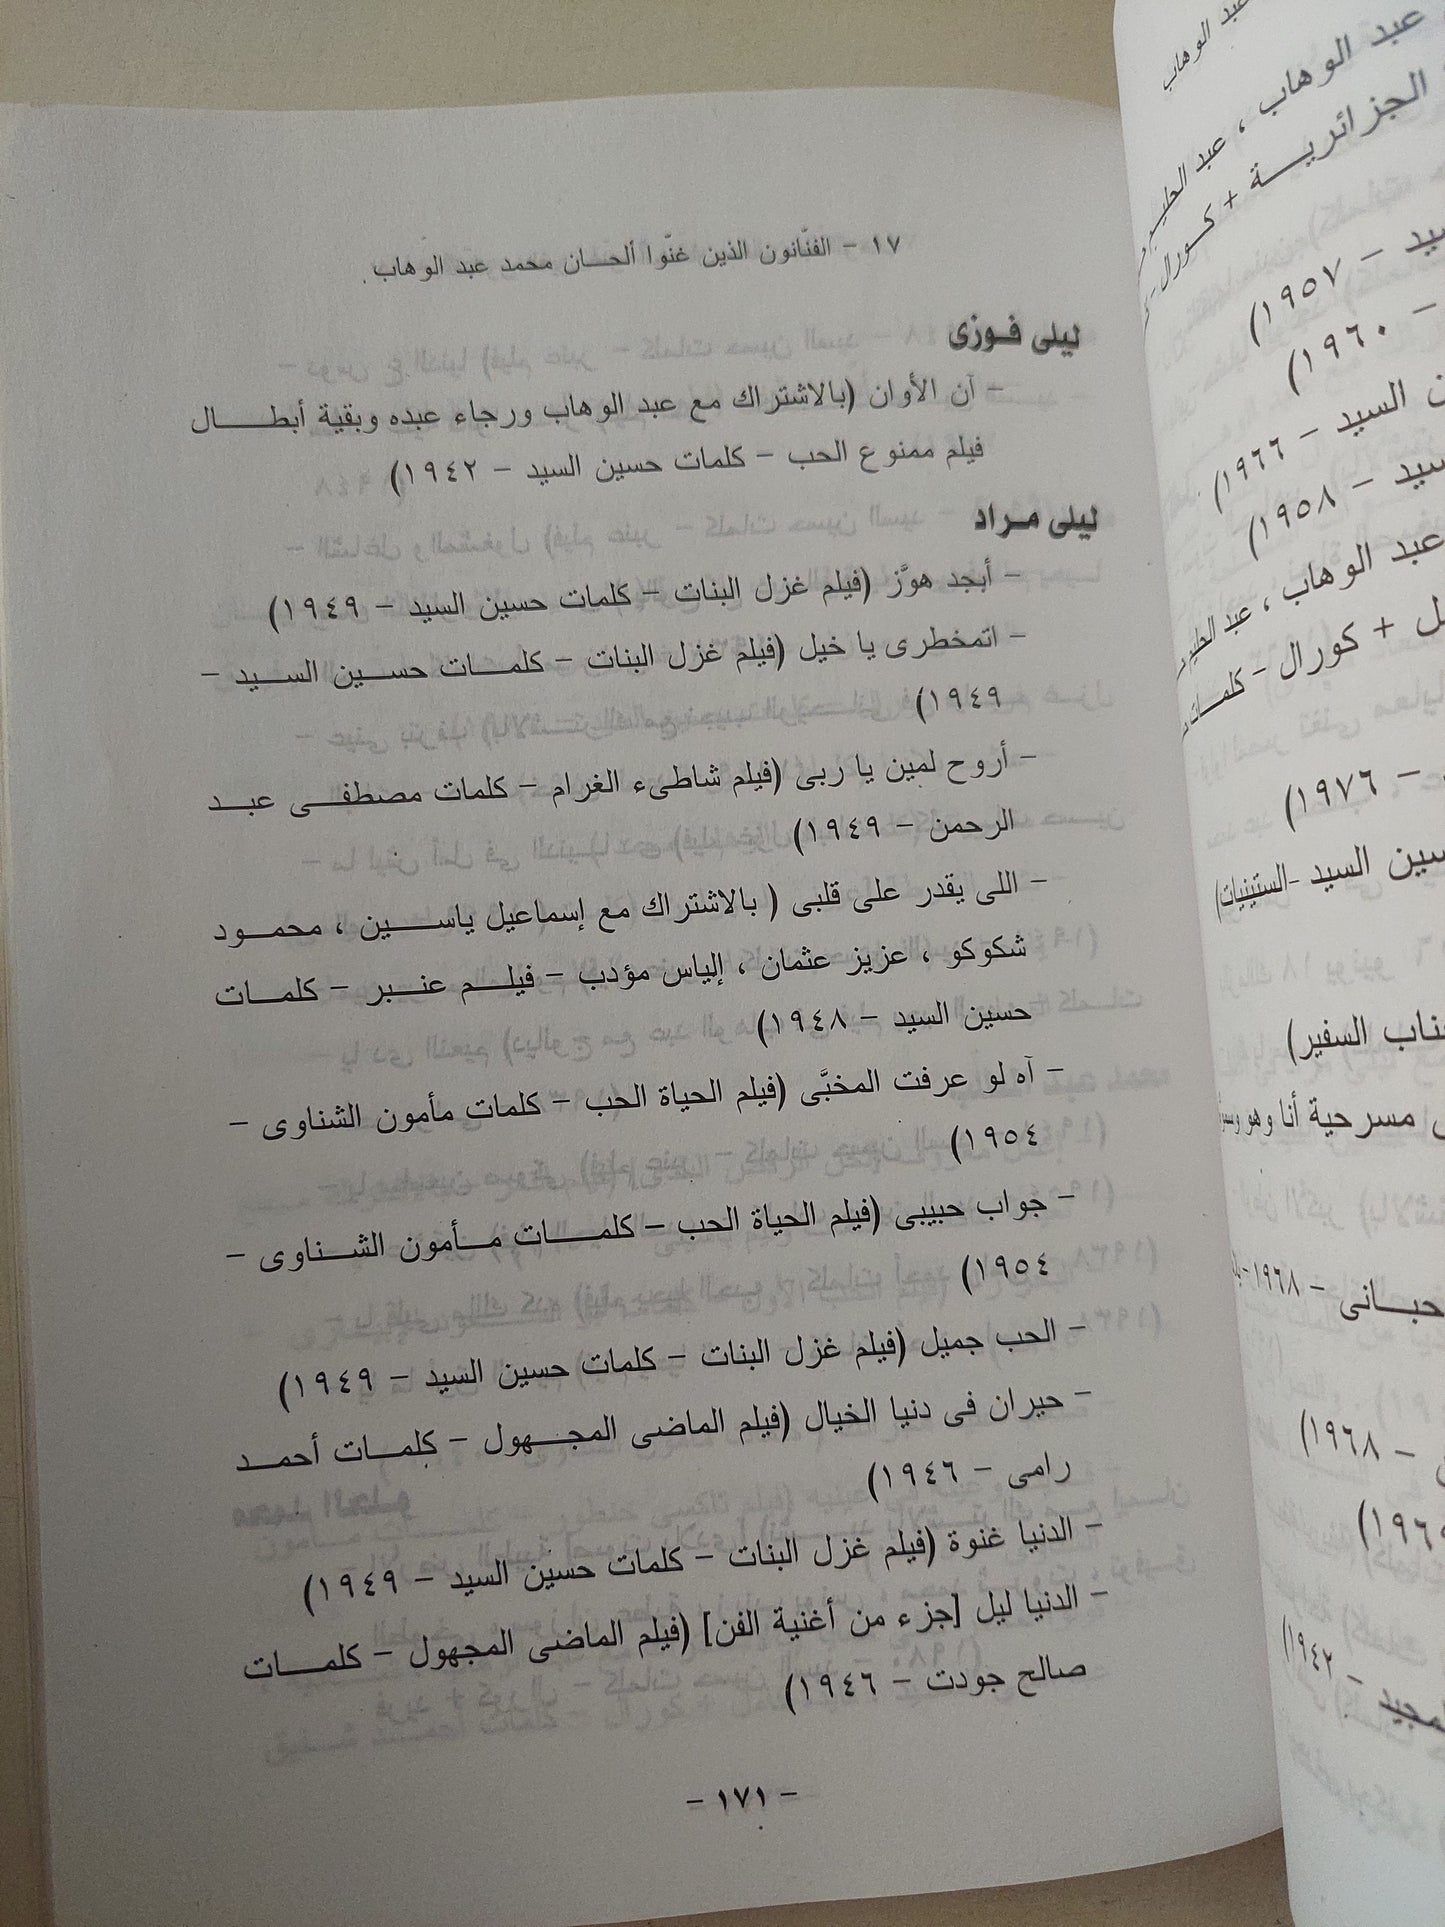 ١٧ – الفنّانون الذين غنّوا ألحـــان محمد عبد الوهاب.
ليلى فـوزى
– آن الأوان (بالاشتراك مع عبد الوهاب ورجاء عبده وبقية أبطـــــال
فيلم ممنوع الحب – كلمات حسين السيد – ١٩٤٢)
ليلى مـراد
– أبجد هوَّز (فيلم غزل البنات – كلمات حسين السيد – ١٩٤٩)
– اتمخطرى يا خيل (فيلم غزل البنات – كلمـــات حســـين الســـيد –
١٩٤٩)
– أروح لمين يا ربى (فيلم شاطىء الغرام – كلمات مصطفـــى عبـــد
الرحمن – ١٩٤٩)
– اللى يقدر على قلبى ( بالاشتراك مع إسماعيل ياســـين ، محمـــود
شكوكو ، عزيز عثمان ، إلياس مؤدب – فيلـــم عنـــبر – كلمـــات
حسين السيد – ١٩٤٨)
– آه لو عرفت المخبَّى (فيلم الحياة الحب – كلمات مأمون الشناوى –
١٩٥٤)
– جواب حبيبى (فيلم الحياة الحب – كلمـــات مـــأمون الشـــناوى –
١٩٥٤)
– الحب جميل (فيلم غزل البنات – كلمات حسين السيد – ١٩٤٩)
– حيران فى دنيا الخيال (فيلم الماضى المجـــهول – كلمـــات أحمـــد
رامى – ١٩٤٦)
– الدنيا غنوة (فيلم غزل البنات – كلمات حسين السيد – ١٩٤٩)
– الدنيا ليل [جزء من أغنية الفن] (فيلم الماضى المجهول – كلمـــات
صالح جودت – ١٩٤٦)
– ١٧١ –
عبد الوهاب
عبد الوهاب ، عبد
الجزائريـــة + كـورال
– ١٩٥٧)
– ١٩٦٠)
السيد – ١٩٦٦)
– ١٩٥٨)
عبد الوهاب ، عبد
+ كورال – كلمات
– ١٩٧٦)
السيد -الستينيات)
السفير)
مسرحية أنا وهو
– ١٩٦٨
– ١٩٦٨)
– ١٩٤٢)